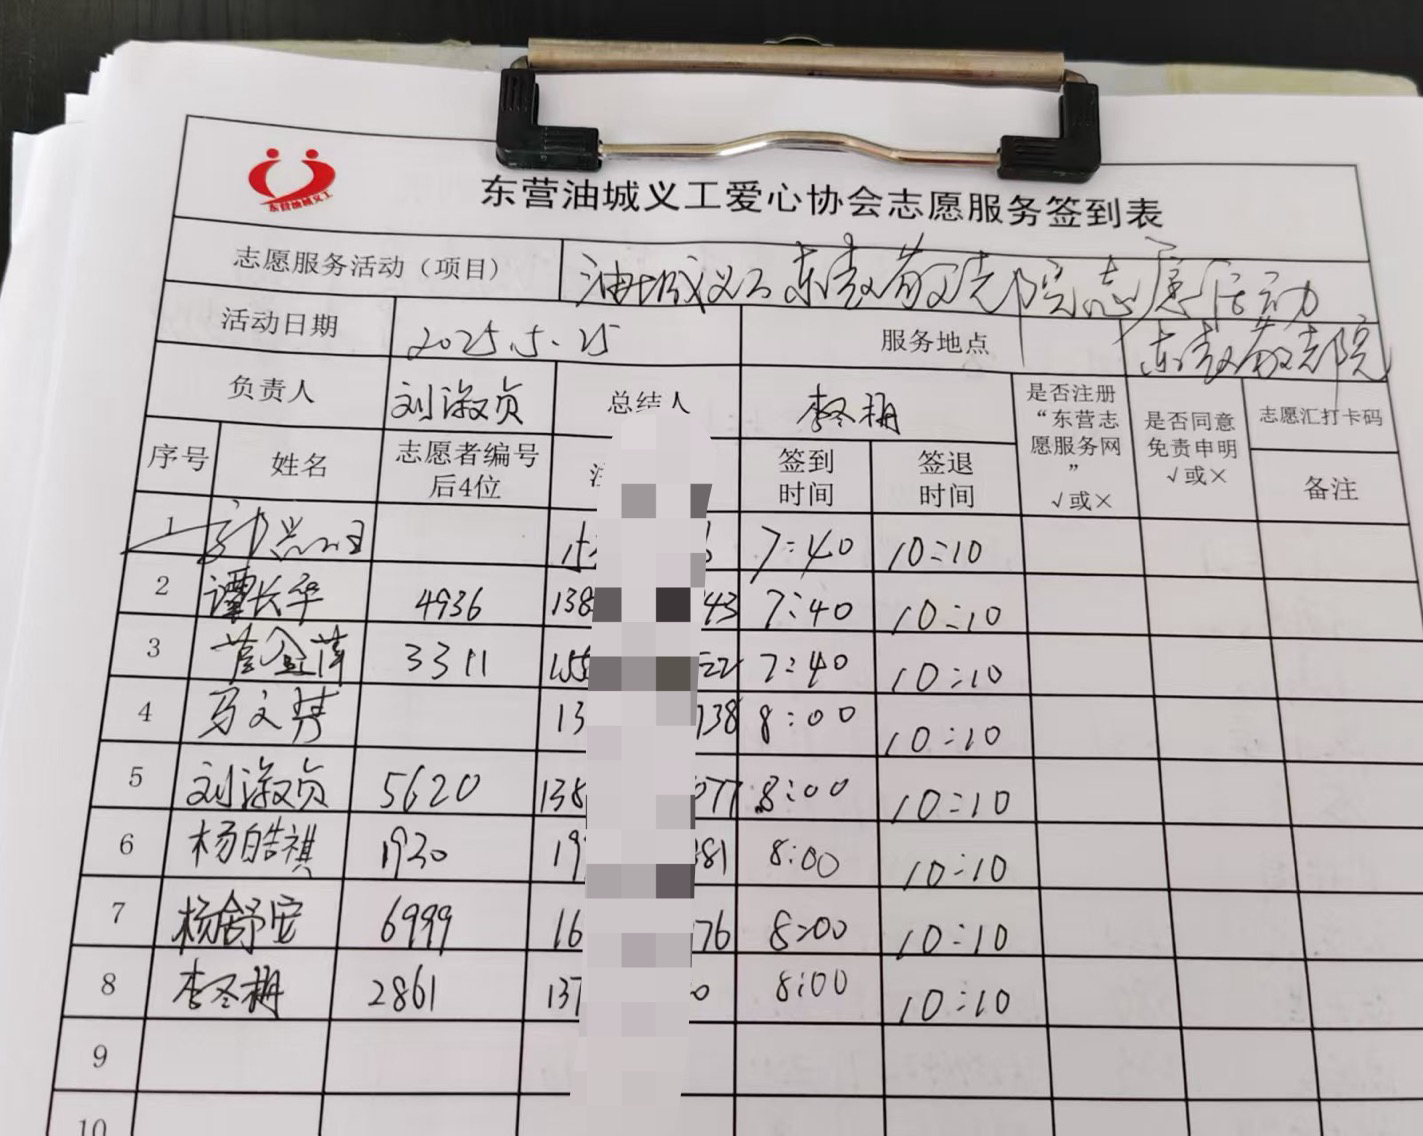 东营油城义工
东营油城义工爱心协会志愿服务签到表
志愿服务活动（项目） 油城义工东营敬老院志愿活动
活动日期 2025.5.25 服务地点 敬老院
负责人 刘淑贞 总结人 李冬梅 是否注册“东营志愿服务网”√或× 是否同意免责申明√或× 志愿汇打卡码
序号 姓名 志愿者编号后4位 签到时间 签退时间 备注
1 7:40 10:10
2 谭长华 4936 138 43 7:40 10:10
3 3311 155 22 7:40 10:10
4 马文 13 738 8:00 10:10
5 刘淑贞 5620 138 077 8:00 10:10
6 杨皓祺 1930 19 381 8:00 10:10
7 杨舒安 6999 16 76 8:00 10:10
8 李冬梅 2861 137 0 8:00 10:10
9
10